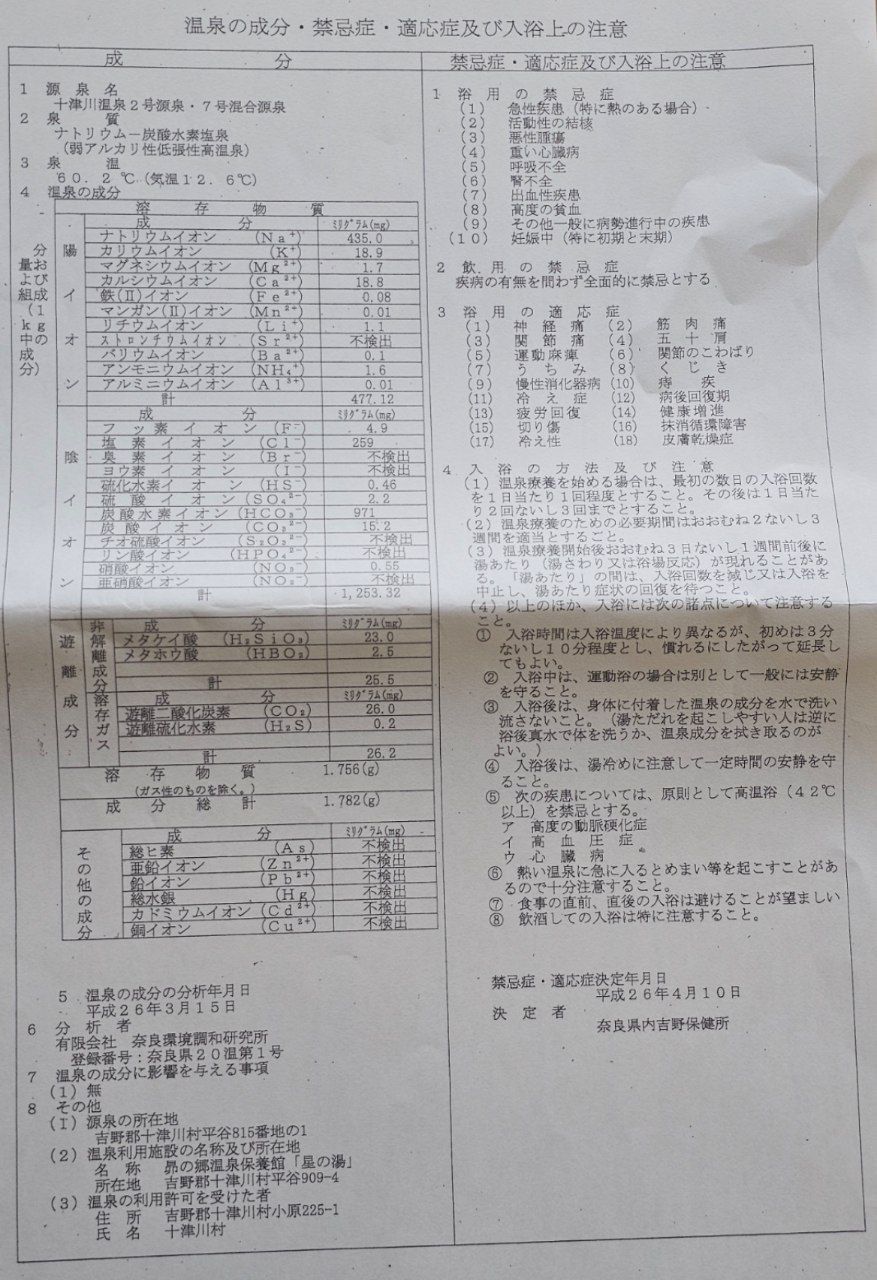 温泉の成分・禁忌症・適応症及び入浴上の注意
成 分
1 源泉名
十津川温泉2号源泉・7号混合源泉
2 泉 質
ナトリウム－炭酸水素塩泉
(弱アルカリ性低張性高温泉)
3 泉 温
60.2℃(気温12.6℃)
4 温泉の成分
分量および組成(1kg中の成分)
溶存物質
陽イオン
成 分 ミリグラム(mg)
ナトリウムイオン (Na⁺) 435.0
カリウムイオン (K⁺) 18.9
マグネシウムイオン (Mg²⁺) 1.7
カルシウムイオン (Ca²⁺) 18.8
鉄(Ⅱ)イオン (Fe²⁺) 0.08
マンガン(Ⅱ)イオン (Mn²⁺) 0.01
リチウムイオン (Li⁺) 1.1
ストロンチウムイオン (Sr²⁺) 不検出
バリウムイオン (Ba²⁺) 0.1
アンモニウムイオン (NH₄⁺) 1.6
アルミニウムイオン (Al³⁺) 0.01
計 477.12
陰イオン
成 分 ミリグラム(mg)
フッ素イオン (F⁻) 4.9
塩素イオン (Cl⁻) 259
臭素イオン (Br⁻) 不検出
ヨウ素イオン (I⁻) 不検出
硫化水素イオン (HS⁻) 0.46
硫酸イオン (SO₄²⁻) 2.2
炭酸水素イオン (HCO₃⁻) 971
炭酸イオン (CO₃²⁻) 15.2
チオ硫酸イオン (S₂O₃²⁻) 不検出
リン酸イオン (HPO₄²⁻) 不検出
硝酸イオン (NO₃⁻) 0.55
亜硝酸イオン (NO₂⁻) 不検出
計 1,253.32
遊離成分
非解離成分
成 分 ミリグラム(mg)
メタケイ酸 (H₂SiO₃) 23.0
メタホウ酸 (HBO₂) 2.5
計 25.5
溶存ガス
成 分 ミリグラム(mg)
遊離二酸化炭素 (CO₂) 26.0
遊離硫化水素 (H₂S) 0.2
計 26.2
溶存物質 1.756(g)
(ガス性のものを除く。)
成分総計 1.782(g)
その他の成分
成 分 ミリグラム(mg)
総ヒ素 (As) 不検出
亜鉛イオン (Zn²⁺) 不検出
鉛イオン (Pb²⁺) 不検出
総水銀 (Hg) 不検出
カドミウムイオン (Cd²⁺) 不検出
銅イオン (Cu²⁺) 不検出
5 温泉の成分の分析年月日
平成26年3月15日
6 分析者
有限会社 奈良環境調和研究所
登録番号：奈良県20温第1号
7 温泉の成分に影響を与える事項
(1)無
8 その他
(1)源泉の所在地
吉野郡十津川村平谷815番地の1
(2)温泉利用施設の名称及び所在地
名 称 昴の郷温泉保養館「星の湯」
所在地 吉野郡十津川村平谷909-4
(3)温泉の利用許可を受けた者
住 所 吉野郡十津川村小原225-1
氏 名 十津川村
禁忌症・適応症及び入浴上の注意
1 浴用の禁忌症
(1) 急性疾患(特に熱のある場合)
(2) 活動性の結核
(3) 悪性腫瘍
(4) 重い心臓病
(5) 呼吸不全
(6) 腎不全
(7) 出血性疾患
(8) 高度の貧血
(9) その他一般に病勢進行中の疾患
(10) 妊娠中(特に初期と末期)
2 飲用の禁忌症
疾病の有無を問わず全面的に禁忌とする
3 浴用の適応症
(1) 神経痛 (2) 筋肉痛
(3) 関節痛 (4) 五十肩
(5) 運動麻痺 (6) 関節のこわばり
(7) うちみ (8) くじき
(9) 慢性消化器病 (10) 痔疾
(11) 冷え症 (12) 病後回復期
(13) 疲労回復 (14) 健康増進
(15) 切り傷 (16) 抹消循環障害
(17) 冷え性 (18) 皮膚乾燥症
4 入浴の方法及び注意
(1)温泉療養を始める場合は、最初の数日の入浴回数
を1日当たり1回程度とすること。その後は1日当た
り2回ないし3回までとすること。
(2)温泉療養のための必要期間はおおむね2ないし3
週間を適当とすること。
(3)温泉療養開始後おおむね3日ないし1週間前後に
湯あたり(湯さわり又は浴場反応)が現れることがあ
る。「湯あたり」の間は、入浴回数を減じ又は入浴を
中止し、湯あたり症状の回復を待つこと。
(4)以上のほか、入浴には次の諸点について注意する
こと。
① 入浴時間は入浴温度により異なるが、初めは3分
ないし10分程度とし、慣れるにしたがって延長し
てもよい。
② 入浴中は、運動浴の場合は別として一般には安静
を守ること。
③ 入浴後は、身体に付着した温泉の成分を水で洗い
流さないこと。(湯ただれを起こしやすい人は逆に
浴後真水で体を洗うか、温泉成分を拭き取るのが
よい。)
④ 入浴後は、湯冷めに注意して一定時間の安静を守
ること。
⑤ 次の疾患については、原則として高温浴(42℃
以上)を禁忌とする。
ア 高度の動脈硬化症
イ 高血圧症
ウ 心臓病
⑥ 熱い温泉に急に入るとめまい等を起こすことがあ
るので十分注意すること。
⑦ 食事の直前、直後の入浴は避けることが望ましい
⑧ 飲酒しての入浴は特に注意すること。
禁忌症・適応症決定年月日
平成26年4月10日
決定者
奈良県内吉野保健所